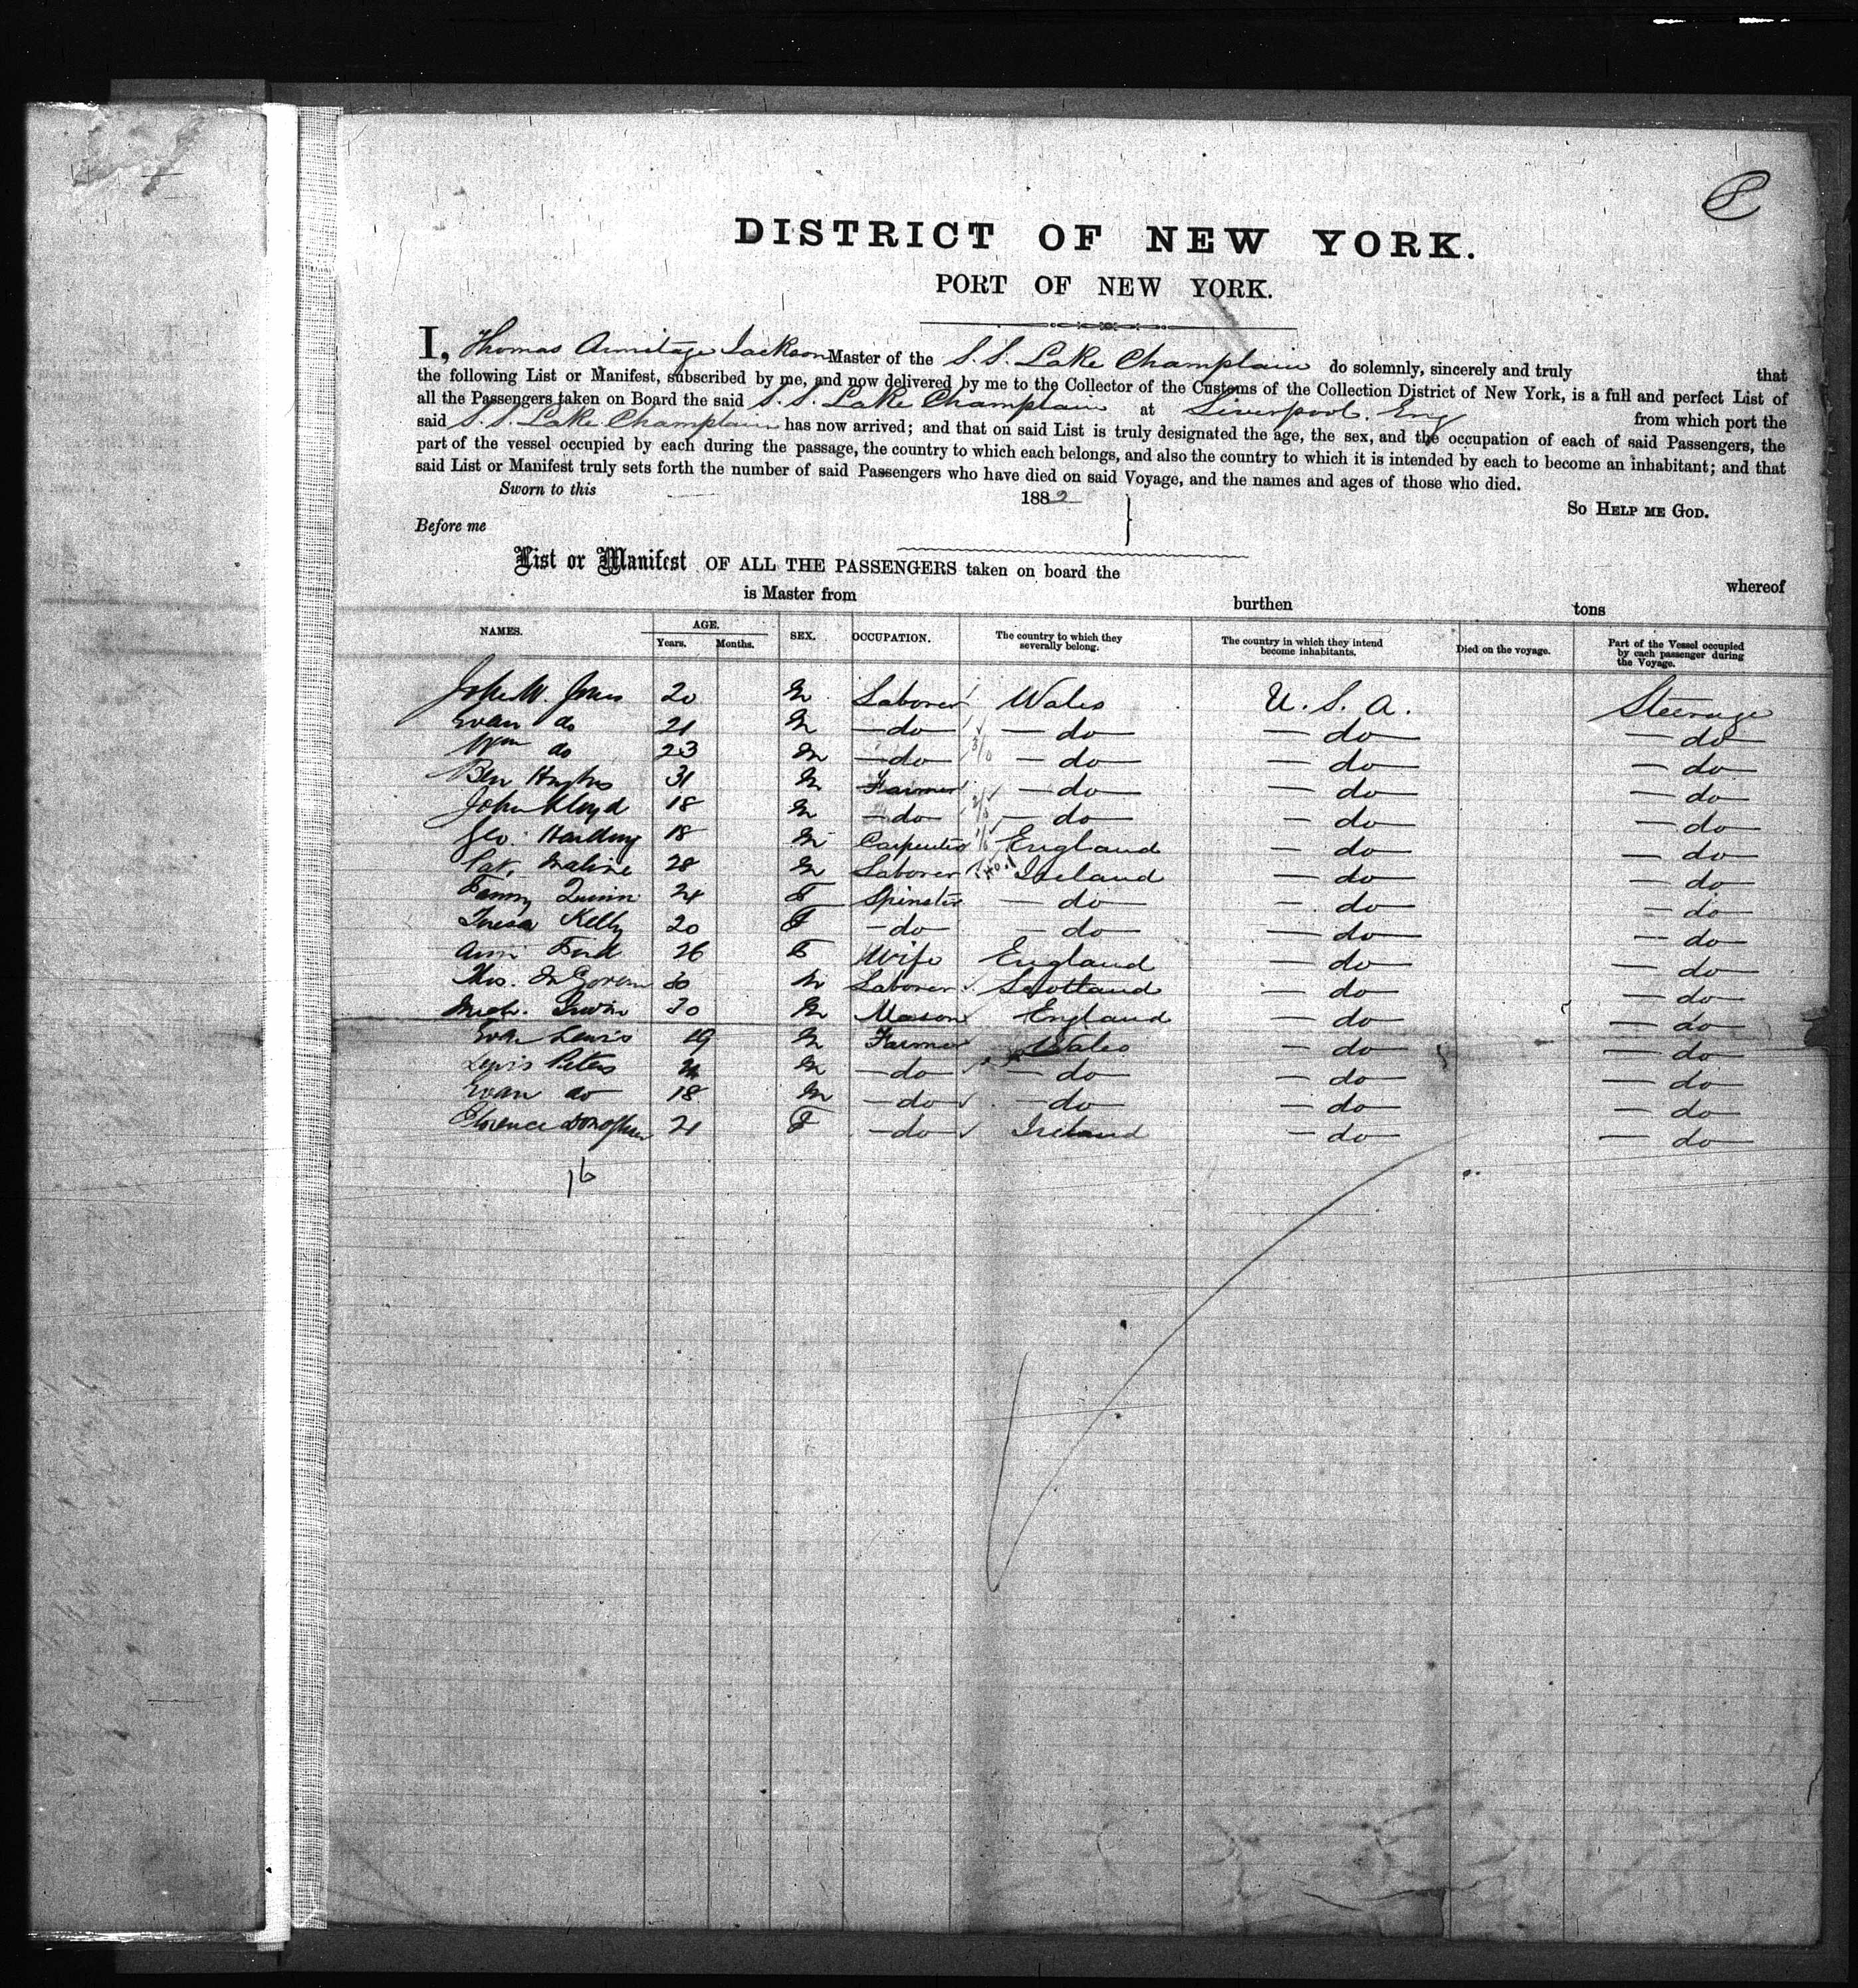 DISTRICT OF NEW YORK.
PORT OF NEW YORK.
I, Thomas Armitage Jackson Master of the S.S. Lake Champlain do solemnly, sincerely and truly that
the following List or Manifest, subscribed by me, and now delivered by me to the Collector of the Customs of the Collection District of New York, is a full and perfect List of
all the Passengers taken on Board the said S.S. Lake Champlain at Liverpool. Eng from which port the
said S.S. Lake Champlain has now arrived; and that on said List is truly designated the age, the sex, and the occupation of each of said Passengers, the
part of the vessel occupied by each during the passage, the country to which each belongs, and also the country to which it is intended by each to become an inhabitant; and that
said List or Manifest truly sets forth the number of said Passengers who have died on said Voyage, and the names and ages of those who died.
Sworn to this 1882 So HELP ME GOD.
Before me
List or Manifest OF ALL THE PASSENGERS taken on board the whereof
is Master from burthen tons
NAMES. AGE. Years. Months. SEX. OCCUPATION. The country to which they severally belong. The country in which they intend become inhabitants. Died on the voyage. Part of the Vessel occupied by each passenger during the Voyage.
John W. Jones 20 M Laborer Wales U.S.A. Steerage
Evan do 21 M -do -do -do -do
Wm do 23 M -do -do -do -do
Ben Hughes 31 M Farmer -do -do -do
John Lloyd 18 M -do -do -do -do
Geo. Harding 18 M Carpenter England -do -do
Pat. Malone 28 M Laborer Ireland -do -do
Fanny Quinn 24 F Spinster -do -do -do
Teresa Kelly 20 F -do -do -do -do
Ann 26 F Wife England -do -do
Thos. M Laborer Scotland -do -do
Mich. Irwin 20 M Mason England -do -do
Evan Lewis 19 M Farmer Wales -do -do
Lewis Peters M -do -do -do -do
Evan do 18 M -do -do -do -do
Florence 21 F -do Ireland -do -do
16